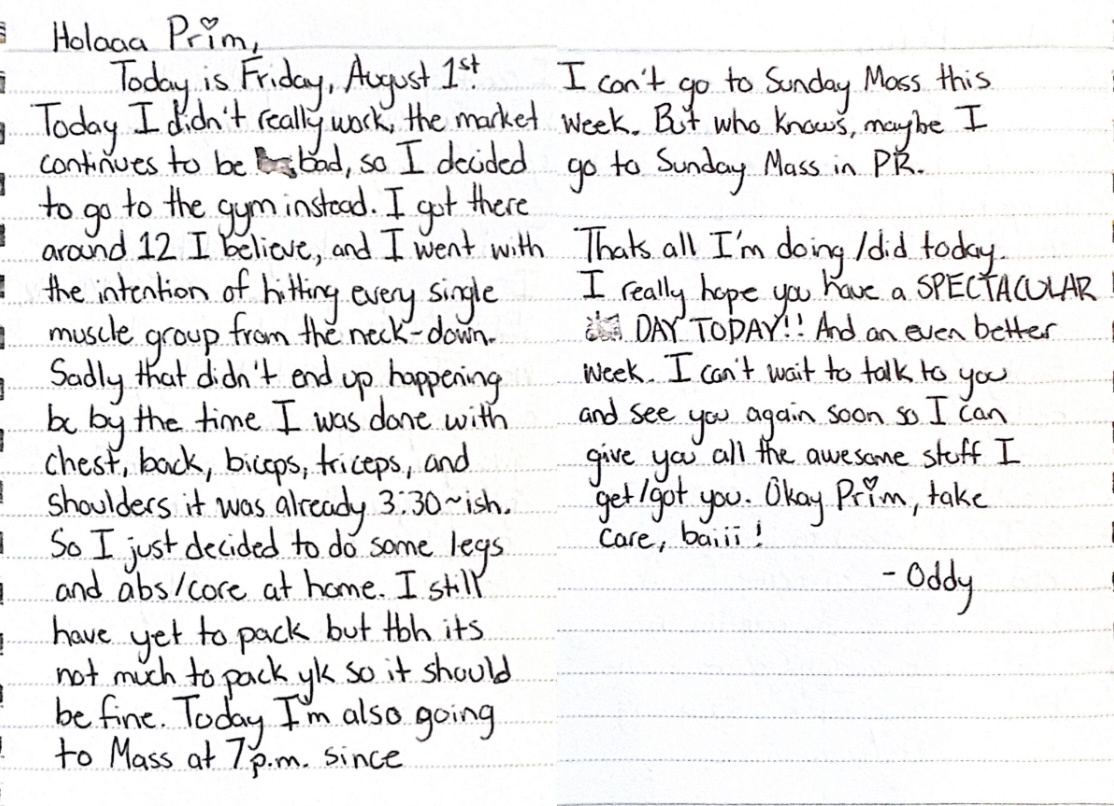 Holaaa Prim,
Today is Friday, August 1st.
Today I didn't really work, the market
continues to be bad, so I decided
to go to the gym instead. I got there
around 12 I believe, and I went with
the intention of hitting every single
muscle group from the neck-down.
Sadly that didn't end up happening
bc by the time I was done with
chest, back, biceps, triceps, and
shoulders it was already 3:30~ish.
So I just decided to do some legs
and abs/core at home. I still
have yet to pack but tbh its
not much to pack yk so it should
be fine. Today I'm also going
to Mass at 7p.m. since
I can't go to Sunday Mass this
week. But who knows, maybe I
go to Sunday Mass in PR.
Thats all I'm doing/did today.
I really hope you have a SPECTACULAR
DAY TODAY!! And an even better
week. I can't wait to talk to you
and see you again soon so I can
give you all the awesome stuff I
get/got you. Okay Prim, take
care, baiii!
- Oddy